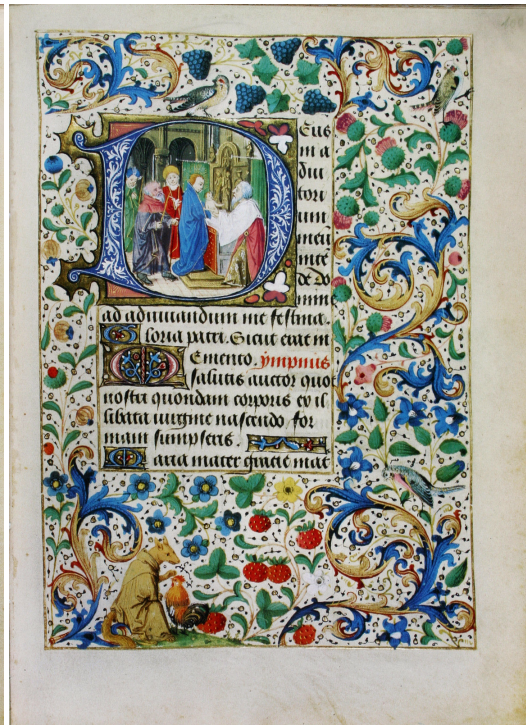 Eus
in a
diu
tori
um
meu
inte
de do
mine
ad adiuuandum me festina.
Gloria patri. Sicut erat in
Memento. ympnus
salutis auctor quod
nostri quondam corporis ex il
libata uirgine nascendo for
mam sumpseris.
Maria mater gracie mat